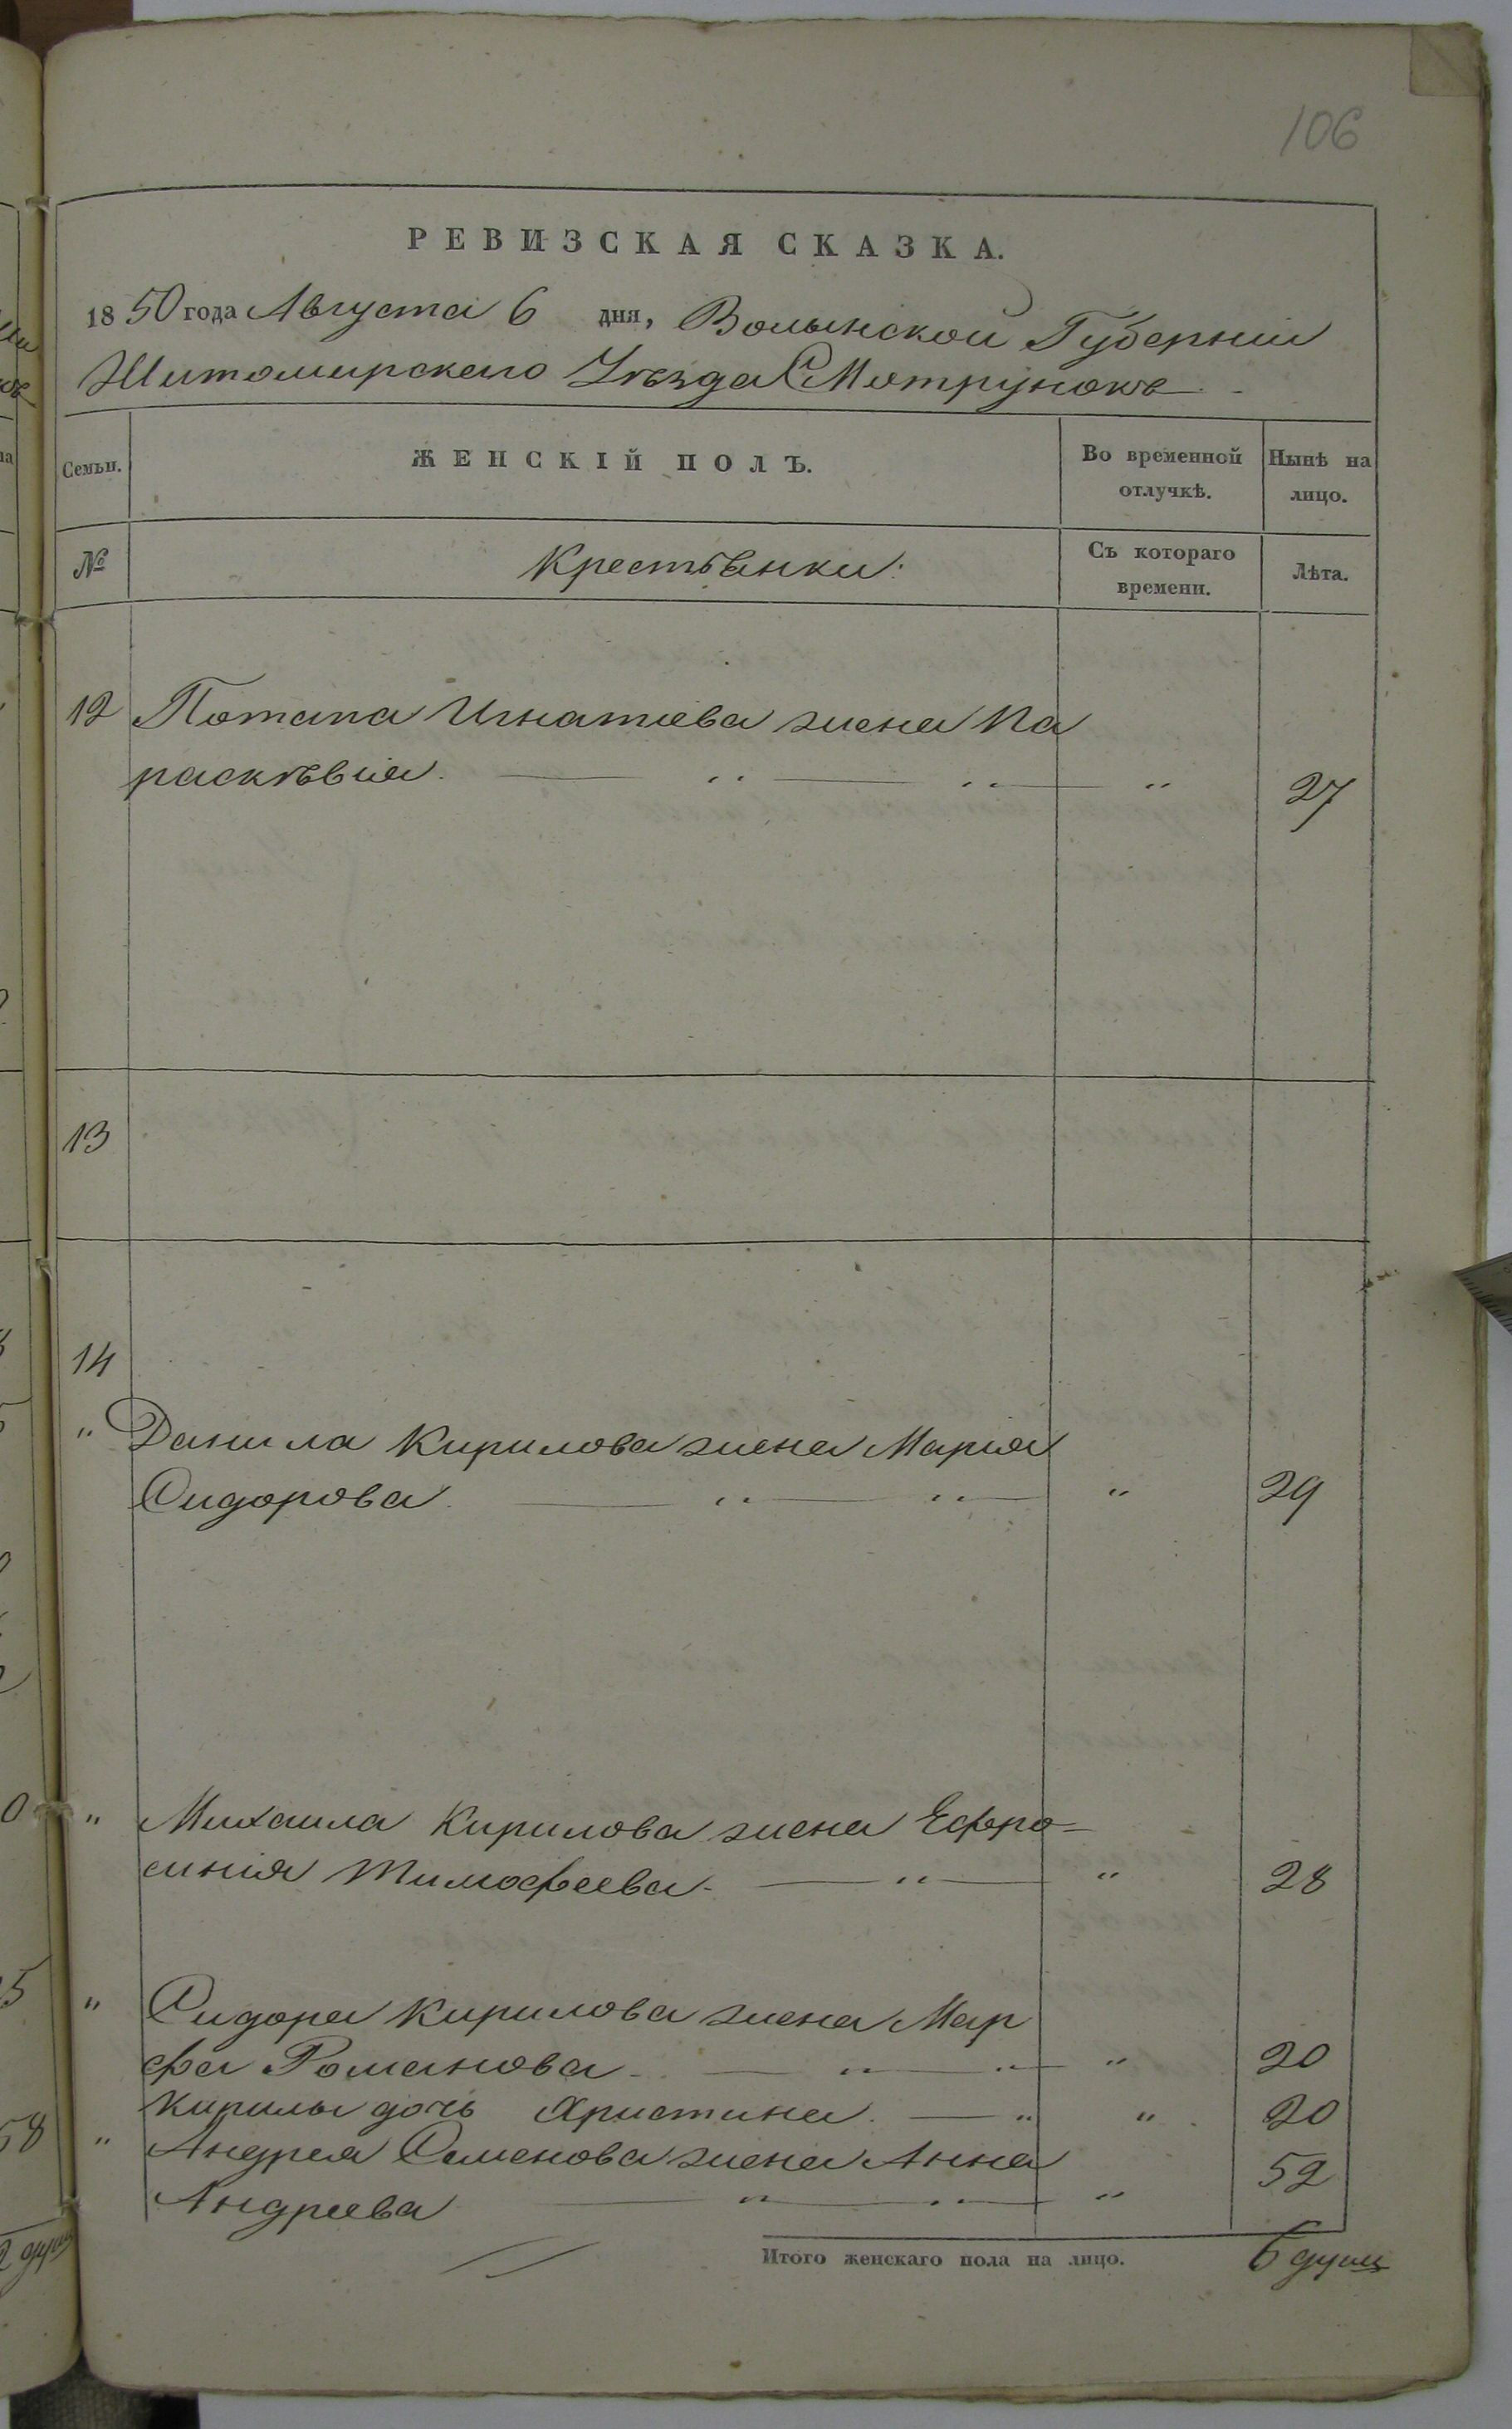 106
РЕВИЗСКАЯ СКАЗКА.
1850 года Августа 6 дня, Волынской Губерніи
Житомирскаго Уѣзда С Мотрунокъ
Семьи. ЖЕНСКІЙ ПОЛЪ. Во временной отлучкѣ. Нынѣ на лицо.
№ Крестьянки: Съ котораго времени. Лѣта.
12 Потапа Игнатіева жена Па
раскѣвія. " 27
13
14
" Данила Кирилова жена Марія
Сидорова. " 29
" Михаила Кирилова жена Ефро=
синія Тимофеева. " 28
" Сидора Кирилова жена Мар
фа Романова " 20
Кирилы дочь Христина. " 20
" Андрея Семенова жена Анна
Андреева " 52
Итого женскаго пола на лицо. 6 душ